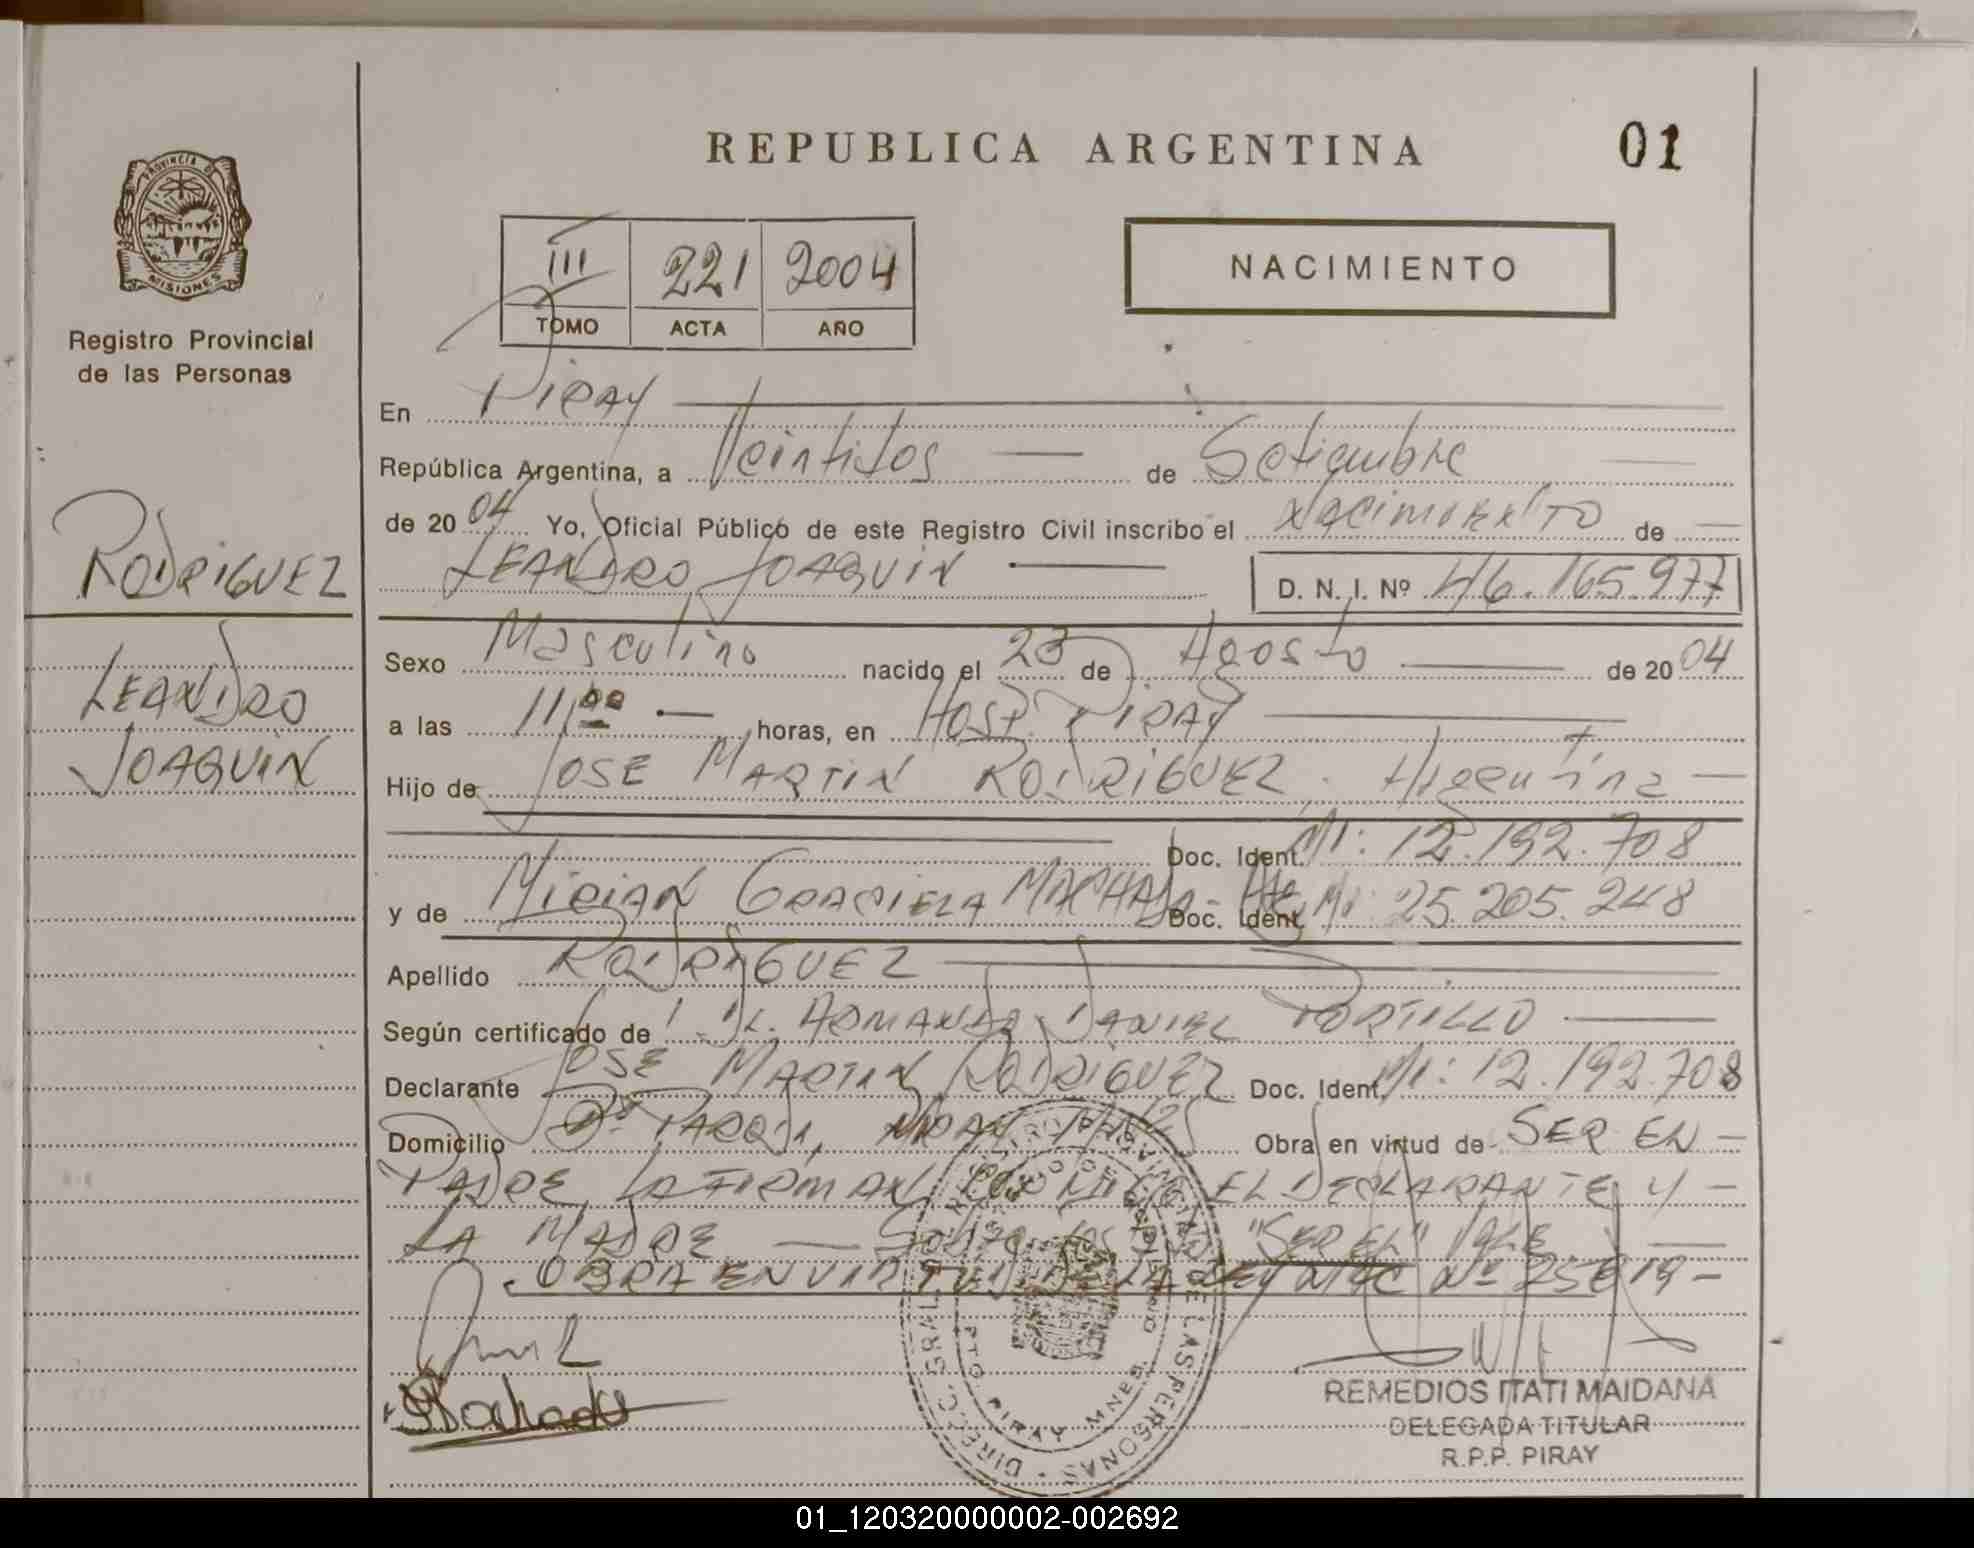 REPUBLICA ARGENTINA
01
PROVINCIA DE
MISIONES
Registro Provincial
de las Personas
III 221 2004
TOMO ACTA AÑO
NACIMIENTO
En Piray
República Argentina, a Veintidos de Setiembre
de 20 04 Yo, Oficial Público de este Registro Civil inscribo el Nacimiento de
LEANDRO JOAQUIN D. N. I. Nº 46.165.977
RODRIGUEZ
LEANDRO
JOAQUIN
Sexo Masculino nacido el 23 de Agosto de 20 04
a las 11,00 horas, en Hosp. Piray
Hijo de JOSE MARTIN RODRIGUEZ, Argentina
Doc. Ident. MI: 12.192.708
y de MIRIAN GRACIELA MACHADO - Doc. Ident. MI: 25.205.248
Apellido RODRIGUEZ
Según certificado de Dr. ARMANDO DANIEL PORTILLO
Declarante JOSE MARTIN RODRIGUEZ Doc. Ident. MI: 12.192.708
Domicilio PIRAY MNES Obra en virtud de SER EN
PADRE, LA FIRMAN CONMIGO EL DECLARANTE Y
LA MADRE "SER EL" VALE
OBRA EN VIRTUD DE LA LEY Nº 25819
Machado
REMEDIOS ITATI MAIDANA
DELEGADA TITULAR
R.P.P. PIRAY
DIRECC. GRAL. DEL REGISTRO PROVINCIAL DE LAS PERSONAS
PTO. PIRAY MNES.
01_120320000002-002692